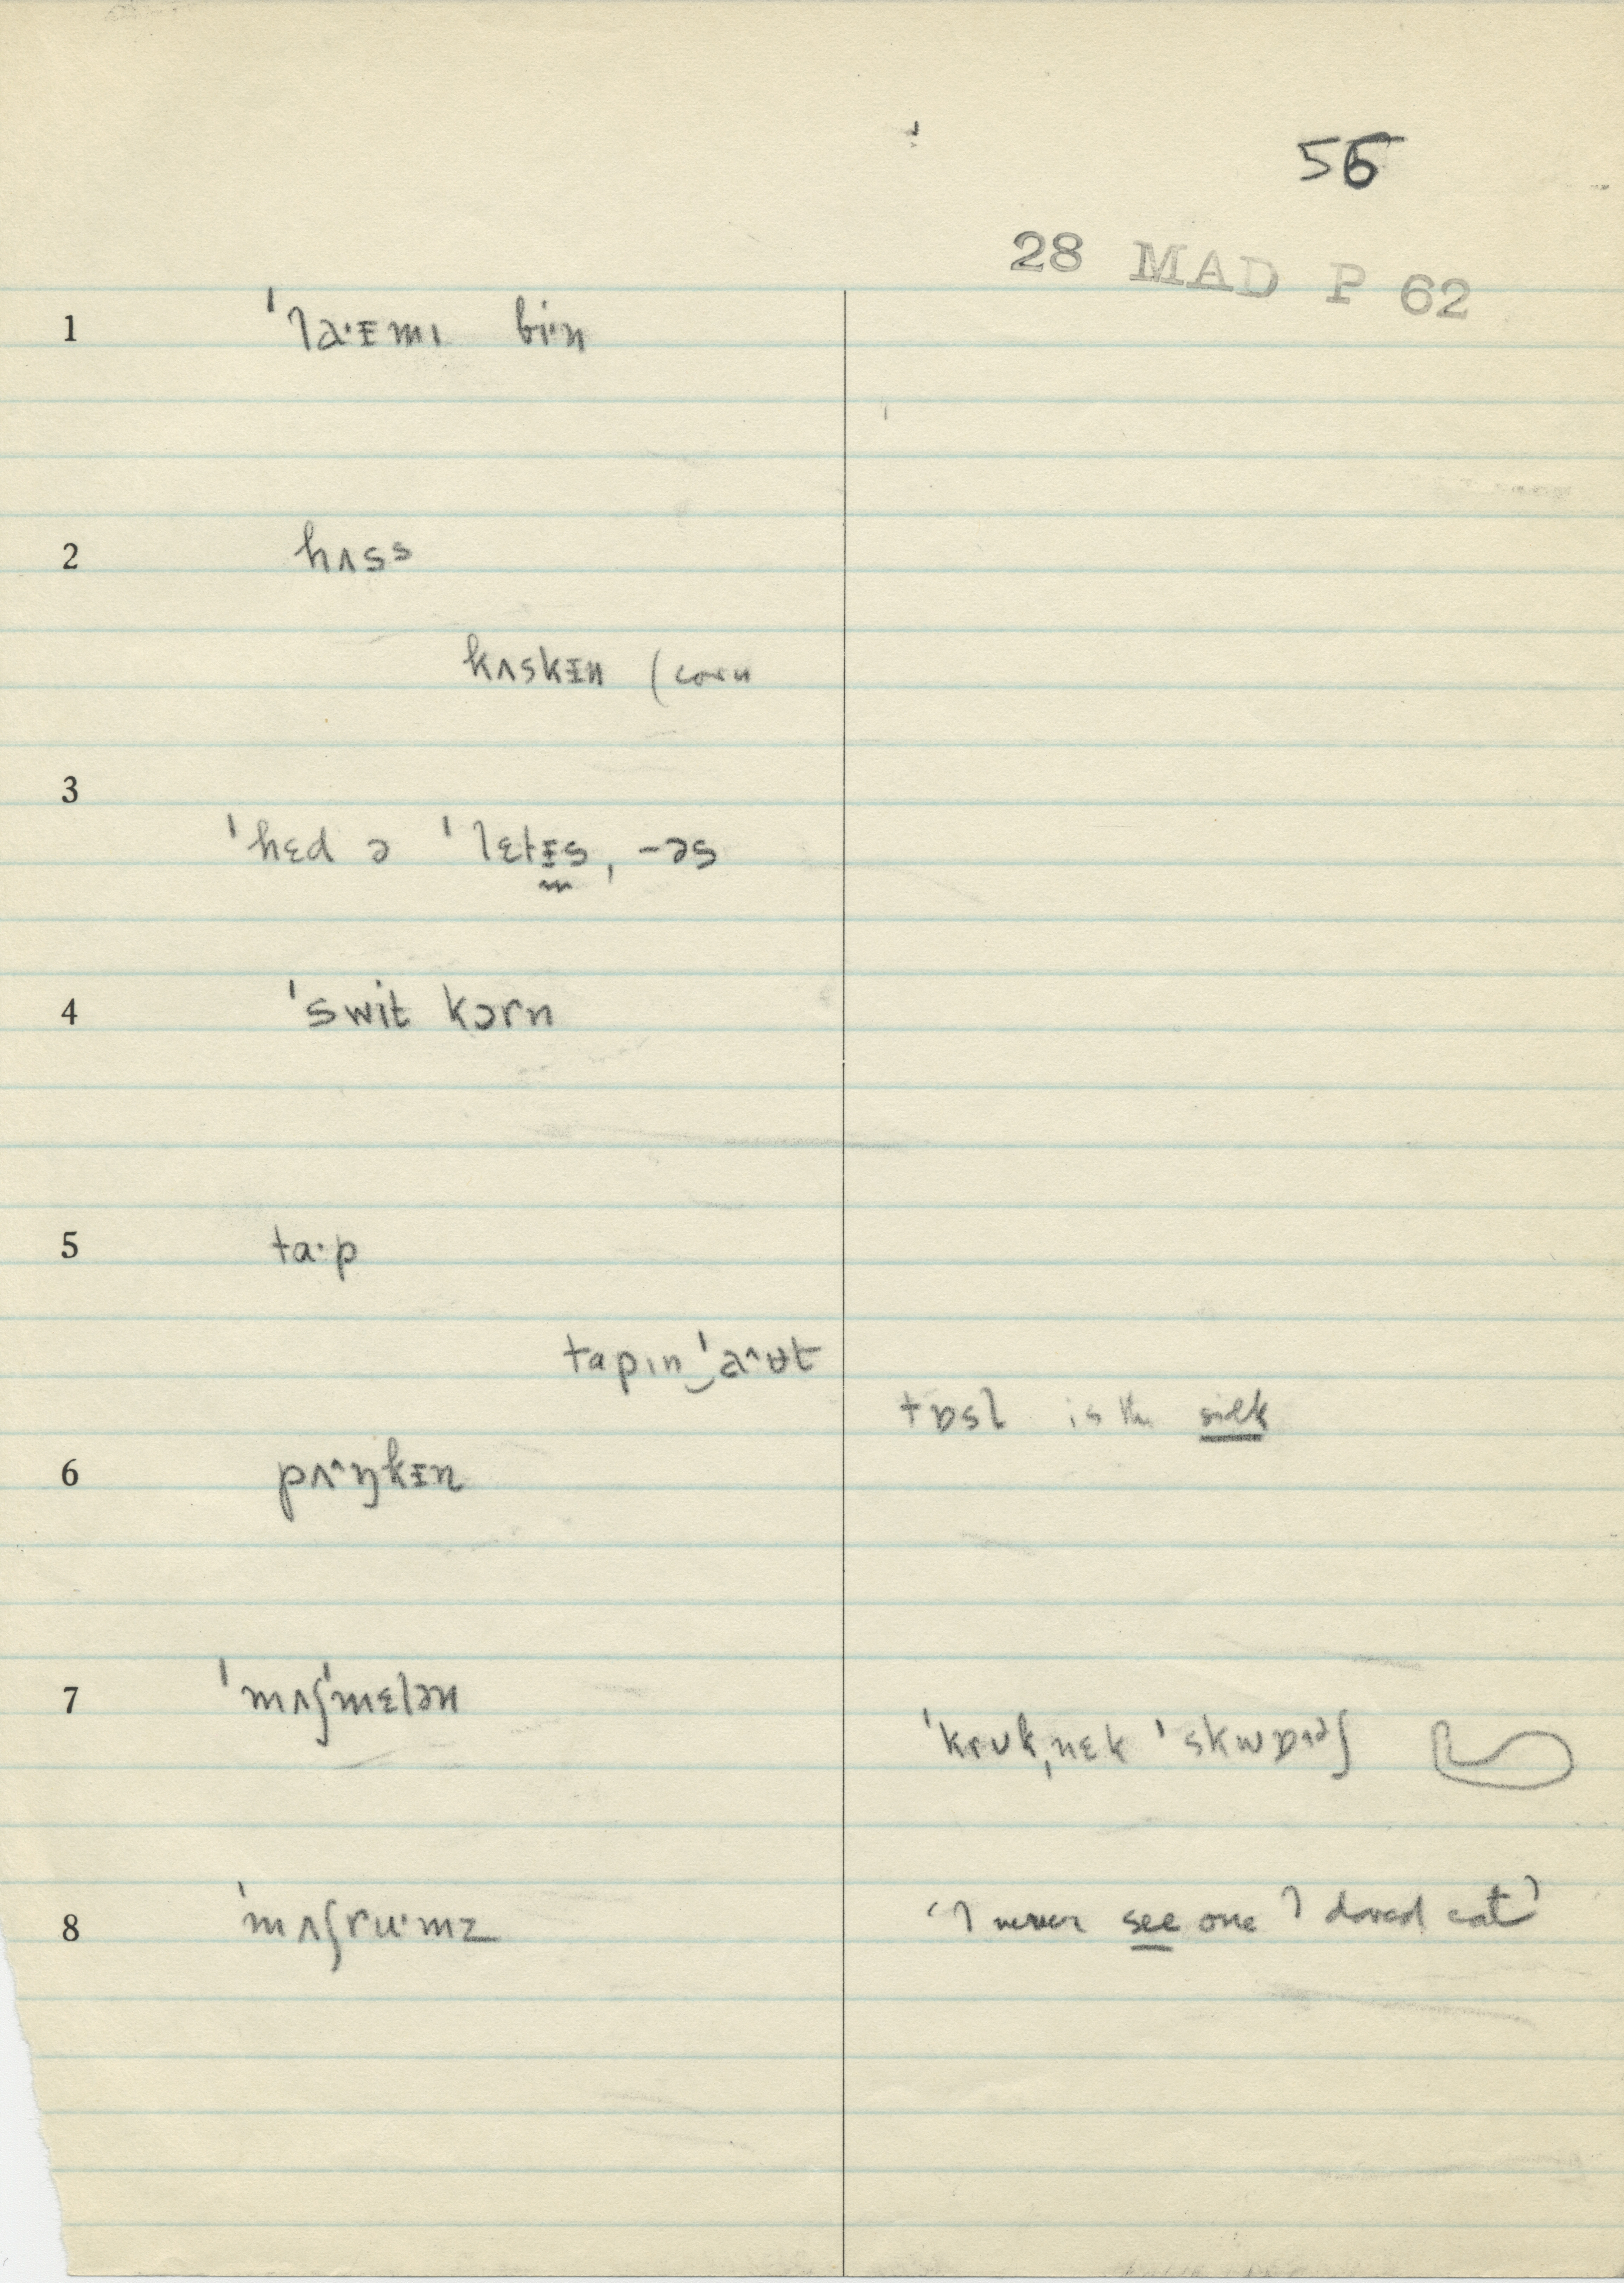 56
28 MAD P 62
1 ˈla·ɪ̵mɪ bi·n
2 hʌss
kʌskɪ̵n (corn
3
ˈhɛd ə ˈlɛtɪ̵s, -əs
4 ˈswit kɔrn
5 ta·p
tapɪn‿ˈaˆʊt
tɒsl is the silk
6 pʌˆŋkɪ̵n
7 ˈmʌʃˈmɛlən
ˈkrʊkˌnɛk ˈskwɒʃ
8 ˈmʌʃru·mz
‘I never see one I dared eat’